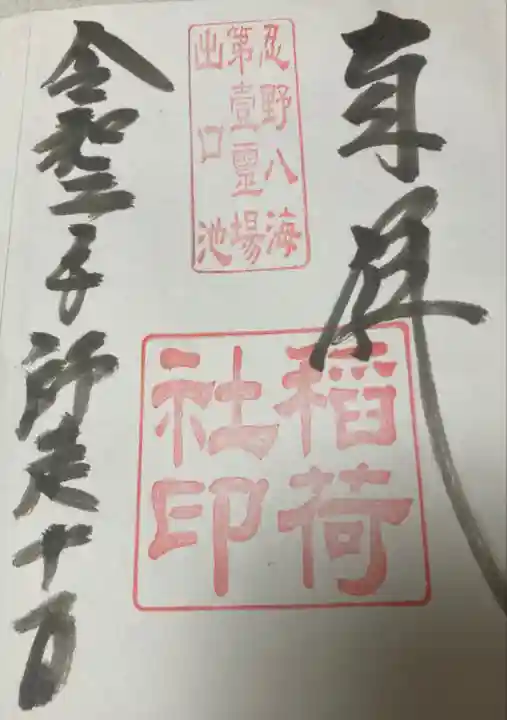 奉拝
忍野八海
第壹靈場
出口池
稲荷
社印
令和二子師走十日